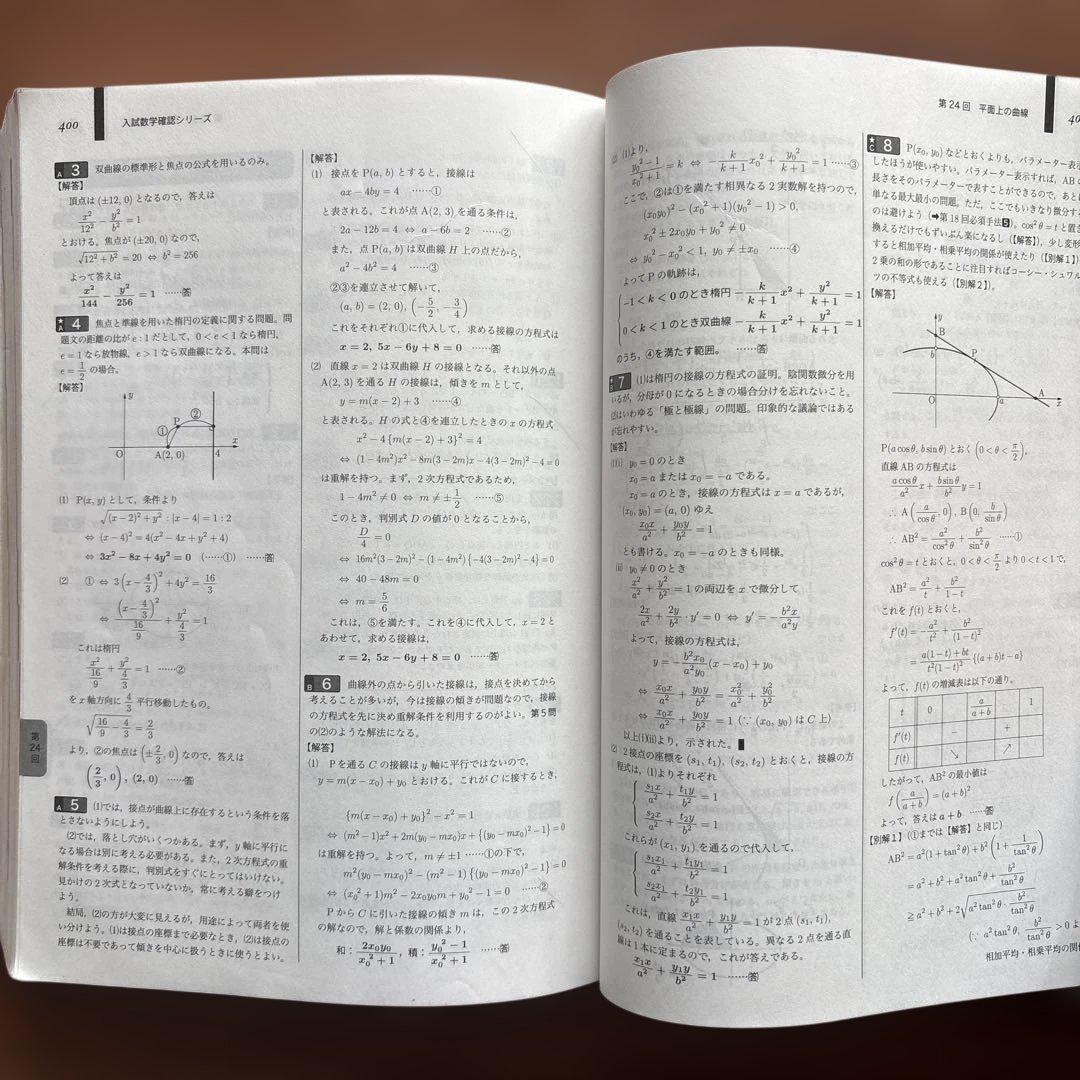 400
入試数学確認シリーズ
A 3 双曲線の標準形と焦点の公式を用いるのみ。
【解答】
頂点は (±12, 0) となるので，答えは
x²/12² − y²/b² = 1
とおける。焦点が (±20, 0) なので，
√(12²+b²) = 20 ⇔ b² = 256
よって答えは
x²/144 − y²/256 = 1 ……答
★A 4 焦点と準線を用いた楕円の定義に関する問題。問
題文の距離の比が e : 1 だとして，0 < e < 1 なら楕円，
e = 1 なら放物線，e > 1 なら双曲線になる。本問は
e = 1/2 の場合。
【解答】
y
②
① P
A(2, 0) 4 x
(1) P(x, y) として，条件より
√((x−2)²+y²) : |x−4| = 1 : 2
⇔ (x−4)² = 4(x²−4x+y²+4)
⇔ 3x²−8x+4y² = 0 (……①) ……答
(2) ① ⇔ 3(x−4/3)²+4y² = 16/3
⇔ (x−4/3)²/(16/9) + y²/(4/3) = 1
これは楕円
x²/(16/9) + y²/(4/3) = 1 ……②
を x 軸方向に 4/3 平行移動したもの。
√(16/9 − 4/3) = 2/3
より，②の焦点は (±2/3, 0) なので，答えは
(2/3, 0), (2, 0) ……答
第24回
A 5 (1)では，接点が曲線上に存在するという条件を落
とさないようにしよう。
(2)では，落とし穴がいくつかある。まず，y 軸に平行に
なる場合は別に考える必要がある。また，2 次方程式の重
解条件を考える際に，判別式をすぐにとってはいけない。
見かけの 2 次式となっていないか，常に考える癖をつけ
よう。
結局，(2)の方が大変に見えるが，用途によって両者を使
い分けよう。(1)は接点の座標まで必要なとき，(2)は接点の
座標は不要であって傾きを中心に扱うときに使うとよい。
【解答】
(1) 接点を P(a, b) とすると，接線は
ax−4by = 4 ……①
と表される。これが点 A(2, 3) を通る条件は，
2a−12b = 4 ⇔ a−6b = 2 ……②
また，点 P(a, b) は双曲線 H 上の点だから，
a²−4b² = 4 ……③
②③を連立させて解いて，
(a, b) = (2, 0), (−5/2, −3/4)
これをそれぞれ①に代入して，求める接線の方程式は
x = 2, 5x−6y+8 = 0 ……答
(2) 直線 x = 2 は双曲線 H の接線となる。それ以外の点
A(2, 3) を通る H の接線は，傾きを m として，
y = m(x−2)+3 ……④
と表される。H の式と④を連立したときの x の方程式
x²−4{m(x−2)+3}² = 4
⇔ (1−4m²)x²−8m(3−2m)x−4(3−2m)²−4 = 0
は重解を持つ。まず，2 次方程式であるため，
1−4m² ≠ 0 ⇔ m ≠ ±1/2 ……⑤
このとき，判別式 D の値が 0 となることから，
D/4 = 0
⇔ 16m²(3−2m)²−(1−4m²){−4(3−2m)²−4} = 0
⇔ 40−48m = 0
⇔ m = 5/6
これは，⑤を満たす。これを④に代入して，x = 2 と
あわせて，求める接線は，
x = 2, 5x−6y+8 = 0 ……答
B 6 曲線外の点から引いた接線は，接点を決めてから
考えることが多いが，今は接線の傾きが問題なので，接線
の方程式を先に決め重解条件を利用するのがよい。第 5 問
の(2)のような解法になる。
【解答】
(1) P を通る C の接線は y 軸に平行ではないので，
y = m(x−x₀)+y₀ とおける。これが C に接するとき，
{m(x−x₀)+y₀}²−x² = 1
⇔ (m²−1)x²+2m(y₀−mx₀)x+{(y₀−mx₀)²−1} = 0
は重解を持つ。よって，m ≠ ±1 ……①の下で，
m²(y₀−mx₀)²−(m²−1){(y₀−mx₀)²−1} = 0
⇔ (x₀²+1)m²−2x₀y₀m+y₀²−1 = 0 ……②
P から C に引いた接線の傾き m は，この 2 次方程式
の解なので，解と係数の関係より，
和：2x₀y₀/(x₀²+1)，積：(y₀²−1)/(x₀²+1) ……答
第 24 回 平面上の曲線
(2) (1)より，
(y₀²−1)/(x₀²+1) = k ⇔ −k/(k+1) x₀² + y₀²/(k+1) = 1 ……③
ここで，②は①を満たす相異なる 2 実数解を持つので，
(x₀y₀)²−(x₀²+1)(y₀²−1) > 0,
x₀²±2x₀y₀+y₀² ≠ 0
⇔ y₀²−x₀² < 1, y₀ ≠ ±x₀ ……④
よって P の軌跡は，
−1 < k < 0 のとき楕円 −k/(k+1) x² + y²/(k+1) = 1
0 < k < 1 のとき双曲線 −k/(k+1) x² + y²/(k+1) = 1
のうち，④を満たす範囲。 ……答
7 (1)は楕円の接線の方程式の証明。陰関数微分を用
いるが，分母が 0 になるときの場合分けを忘れないこと。
(2)はいわゆる「極と極線」の問題。印象的な議論ではある
が忘れやすい。
【解答】
(1)(i) y₀ = 0 のとき
x₀ = a または x₀ = −a である。
x₀ = a のとき，接線の方程式は x = a であるが，
(x₀, y₀) = (a, 0) ゆえ
x₀x/a² + y₀y/b² = 1
とも書ける。x₀ = −a のときも同様。
(ii) y₀ ≠ 0 のとき
x²/a² + y²/b² = 1 の両辺を x で微分して
2x/a² + 2y/b²・y′ = 0 ⇔ y′ = −b²x/a²y
よって，接線の方程式は，
y = −b²x₀/a²y₀ (x−x₀)+y₀
⇔ x₀x/a² + y₀y/b² = x₀²/a² + y₀²/b²
⇔ x₀x/a² + y₀y/b² = 1 (∵ (x₀, y₀) は C 上)
以上(i)(ii)より，示された。■
(2) 2 接点の座標を (s₁, t₁), (s₂, t₂) とおくと，接線の方
程式は，(1)よりそれぞれ
s₁x/a² + t₁y/b² = 1
s₂x/a² + t₂y/b² = 1
これらが (x₁, y₁) を通るので代入して，
s₁x₁/a² + t₁y₁/b² = 1
s₂x₁/a² + t₂y₁/b² = 1
これは，直線 x₁x/a² + y₁y/b² = 1 が 2 点 (s₁, t₁),
(s₂, t₂) を通ることを表している。異なる 2 点を通る直
線は 1 本に定まるので，これが答えである。
x₁x/a² + y₁y/b² = 1 ……答
★C 8 P(x₀, y₀) などとおくよりも，パラメーター表示
したほうが使いやすい。パラメーター表示すれば，AB の
長さをそのパラメーターで表すことができるので，あとは
単なる最大最小の問題。ただ，ここでもいきなり微分する
のは避けよう (➡第 18 回必須手法5)。cos²θ = t と置き
換えるだけでもずいぶん楽になるし (【解答】)，少し変形
すると相加平均・相乗平均の関係が使えたり (【別解 1】)
2 乗の和の形であることに注目すればコーシー・シュワル
ツの不等式も使える (【別解 2】)。
【解答】
y
B
b P
O a A x
P(a cosθ, b sinθ) とおく (0 < θ < π/2)。
直線 AB の方程式は
a cosθ/a² x + b sinθ/b² y = 1
∴ A(a/cosθ, 0), B(0, b/sinθ)
∴ AB² = a²/cos²θ + b²/sin²θ ……①
cos²θ = t とおくと，0 < θ < π/2 より 0 < t < 1 で，
AB² = a²/t + b²/(1−t)
これを f(t) とおくと，
f′(t) = −a²/t² + b²/(1−t)²
= {a(1−t)+bt}/{t²(1−t)²} {(a+b)t−a}
よって，f(t) の増減表は以下の通り。
t 0 a/(a+b) 1
f′(t) − +
f(t) ↘ ↗
したがって，AB² の最小値は
f(a/(a+b)) = (a+b)²
よって，答えは a+b ……答
【別解 1】(①までは【解答】と同じ)
AB² = a²(1+tan²θ)+b²(1+1/tan²θ)
= a²+b²+a²tan²θ+b²/tan²θ
≧ a²+b²+2√(a²tan²θ・b²/tan²θ)
(∵ a²tan²θ, b²/tan²θ > 0 より
相加平均・相乗平均の関係